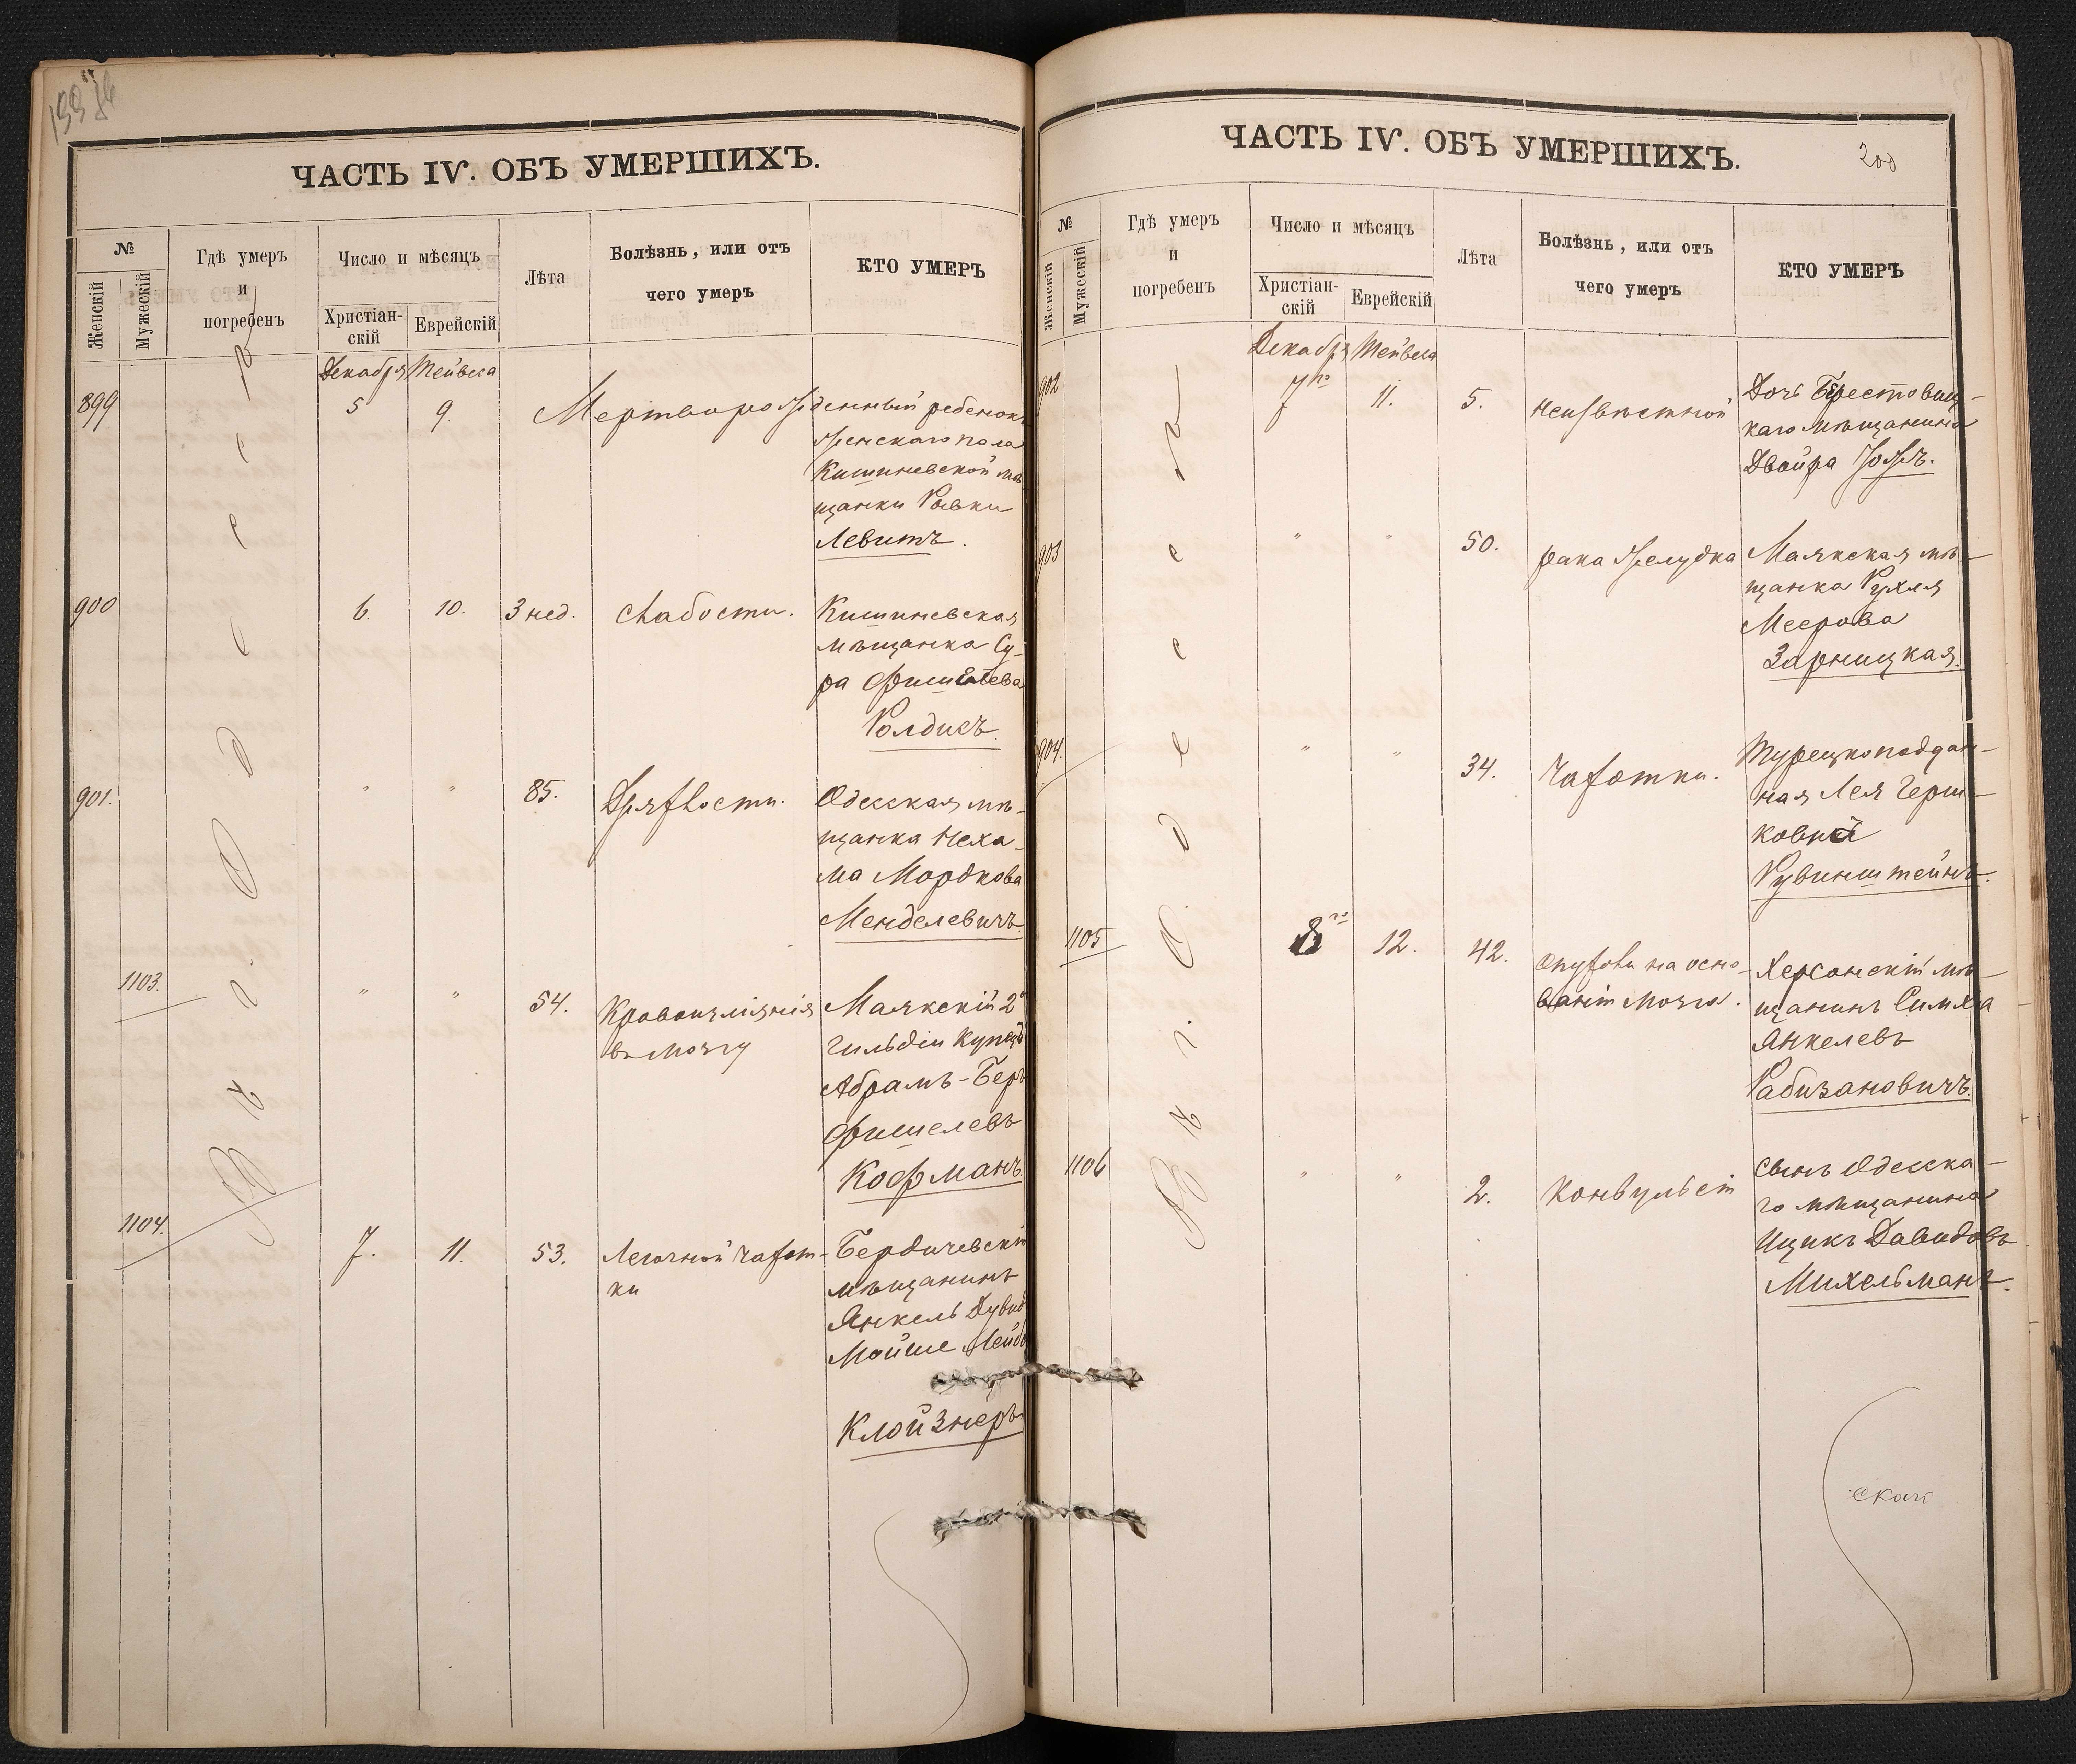 ЧАСТЬ IV. ОБЪ УМЕРШИХЪ.
№
Женскій
Мужескій
Гдѣ умеръ
и
погребенъ
Число и мѣсяцъ
Христіан-
скій
Еврейскій
Лѣта
Болѣзнь, или отъ
чего умеръ
КТО УМЕРЪ
Въ г. Одессѣ
Декабря Тейвеса
899 5 9. Мертворожденный ребенокъ
женскаго пола
Кишиневской мѣ-
щанки Ривки
Левитъ.
900 6. 10. 3 нед. Слабости. Кишиневская
мѣщанка Су-
ра Фишелева
Ролдисъ.
901. " " 85. Дряхлости. Одесская мѣ-
щанка Неха-
ма Мордкова
Менделевичъ.
1103. " " 54. Кровоизліянія Маякскій 2й
въ мозгу гильдіи купецъ
Абрамъ-Беръ
Фишелевъ
Кофманъ.
1104. 7. 11. 53. Легочной чахот- Бердичевскій
ки мѣщанинъ
Янкель Дувид
Мойше Лейб
Клойзнеръ
ЧАСТЬ IV. ОБЪ УМЕРШИХЪ.
200
№
Женскій
Мужескій
Гдѣ умеръ
и
погребенъ
Число и мѣсяцъ
Христіан-
скій
Еврейскій
Лѣта
Болѣзнь, или отъ
чего умеръ
КТО УМЕРЪ
Въ г. Одессѣ
Декабря Тейвеса
902 7го 11. 5. неизвѣстной Дочь Берестовиц-
каго мѣщанина
Двойра
903 " " 50. рака желудка Маякская мѣ-
щанка Рухля
Меерова
Зарницкая.
904. " " 34. Чахотки. Турецкоподдан-
ная Лея Герш-
ковна
Рувинштейнъ.
1105 8го 12. 42. Опухоли на осно- Херсонскій мѣ-
ваніи мозга. щанинъ Симха
Янкелевъ
Рабизановичъ.
1106 " " 2. Конвульсій сынъ Одесска-
го мѣщанина
Ицикъ Давидовъ
Михельманъ.